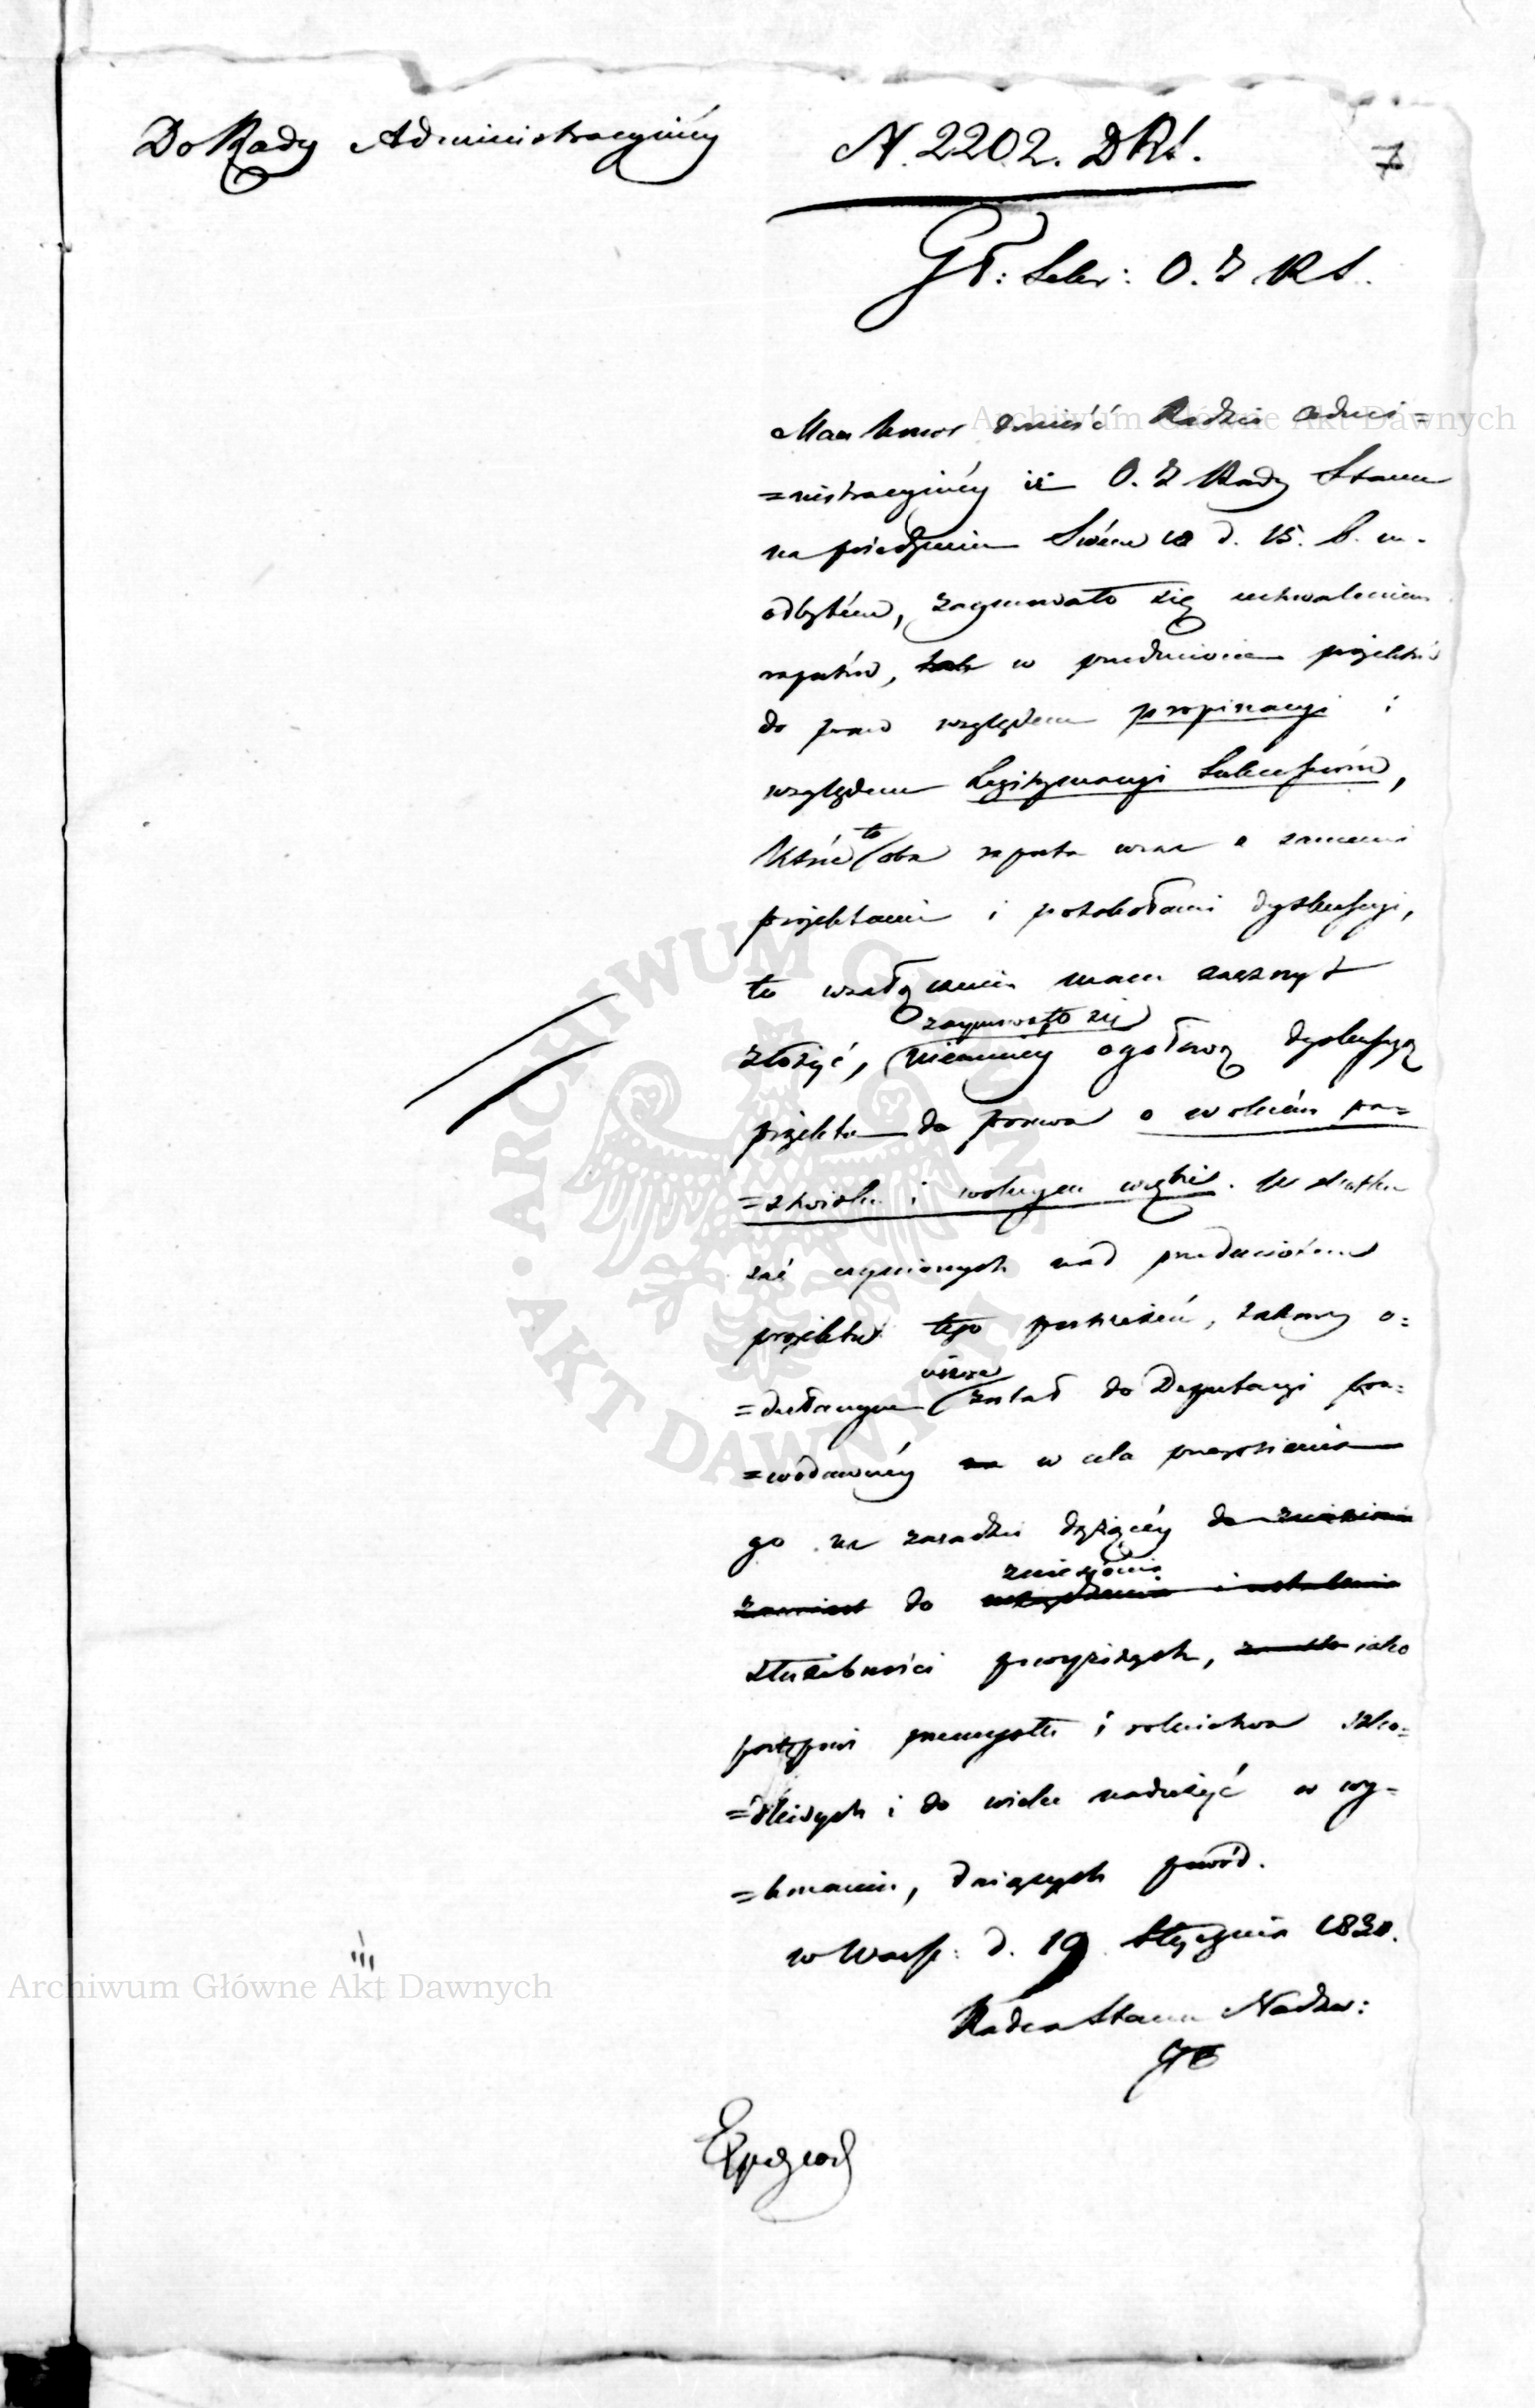 Do Rady Administracyinéy
N. 2202. DRS.
7
Gł: Sekr: O. Z RS.
Mam honor donieść Radzie Admi=
=nistracyinéy iż O. Z Rady Stanu
na posiedzeniu Swém w d. 15. b. m.
odbytém, zaymowało się uchwaleniem
raportów, w przedmiocie projektów
do praw względem propinacyi i
względem Legitymacyi Sukcessorów,
które to oba raporta wraz z samemi
projektami i protokołami dyskussyi,
tu w załączeniu mam zaszczyt
zaymowało się
złożyć, niemniéy ogólową dyskussyą
projektu do prawa o wolném pa=
=stwisku i wolnym wrębie. W skutku
zaś uczynionych nad przedmiotem
projektu tego postrzeżeń, takowy o=
=desłanym zostal do Deputacyi pra=
=wodawczéy w celu przerobienia
go na zasadzie dążącéy do zniesienia
zniesienia
do
służebności powyższych, iako
postępowi przemysłu i rolnictwa szko=
=dliwych i do wielu nadużyć w wy=
=konaniu, daiących powód.
w Warsz: d. 19 Stycznia 1830.
Radca Stanu Nadzw:
Expedyow
Archiwum Główne Akt Dawnych
Archiwum Główne Akt Dawnych
ARCHIWUM GŁÓWNE
AKT DAWNYCH